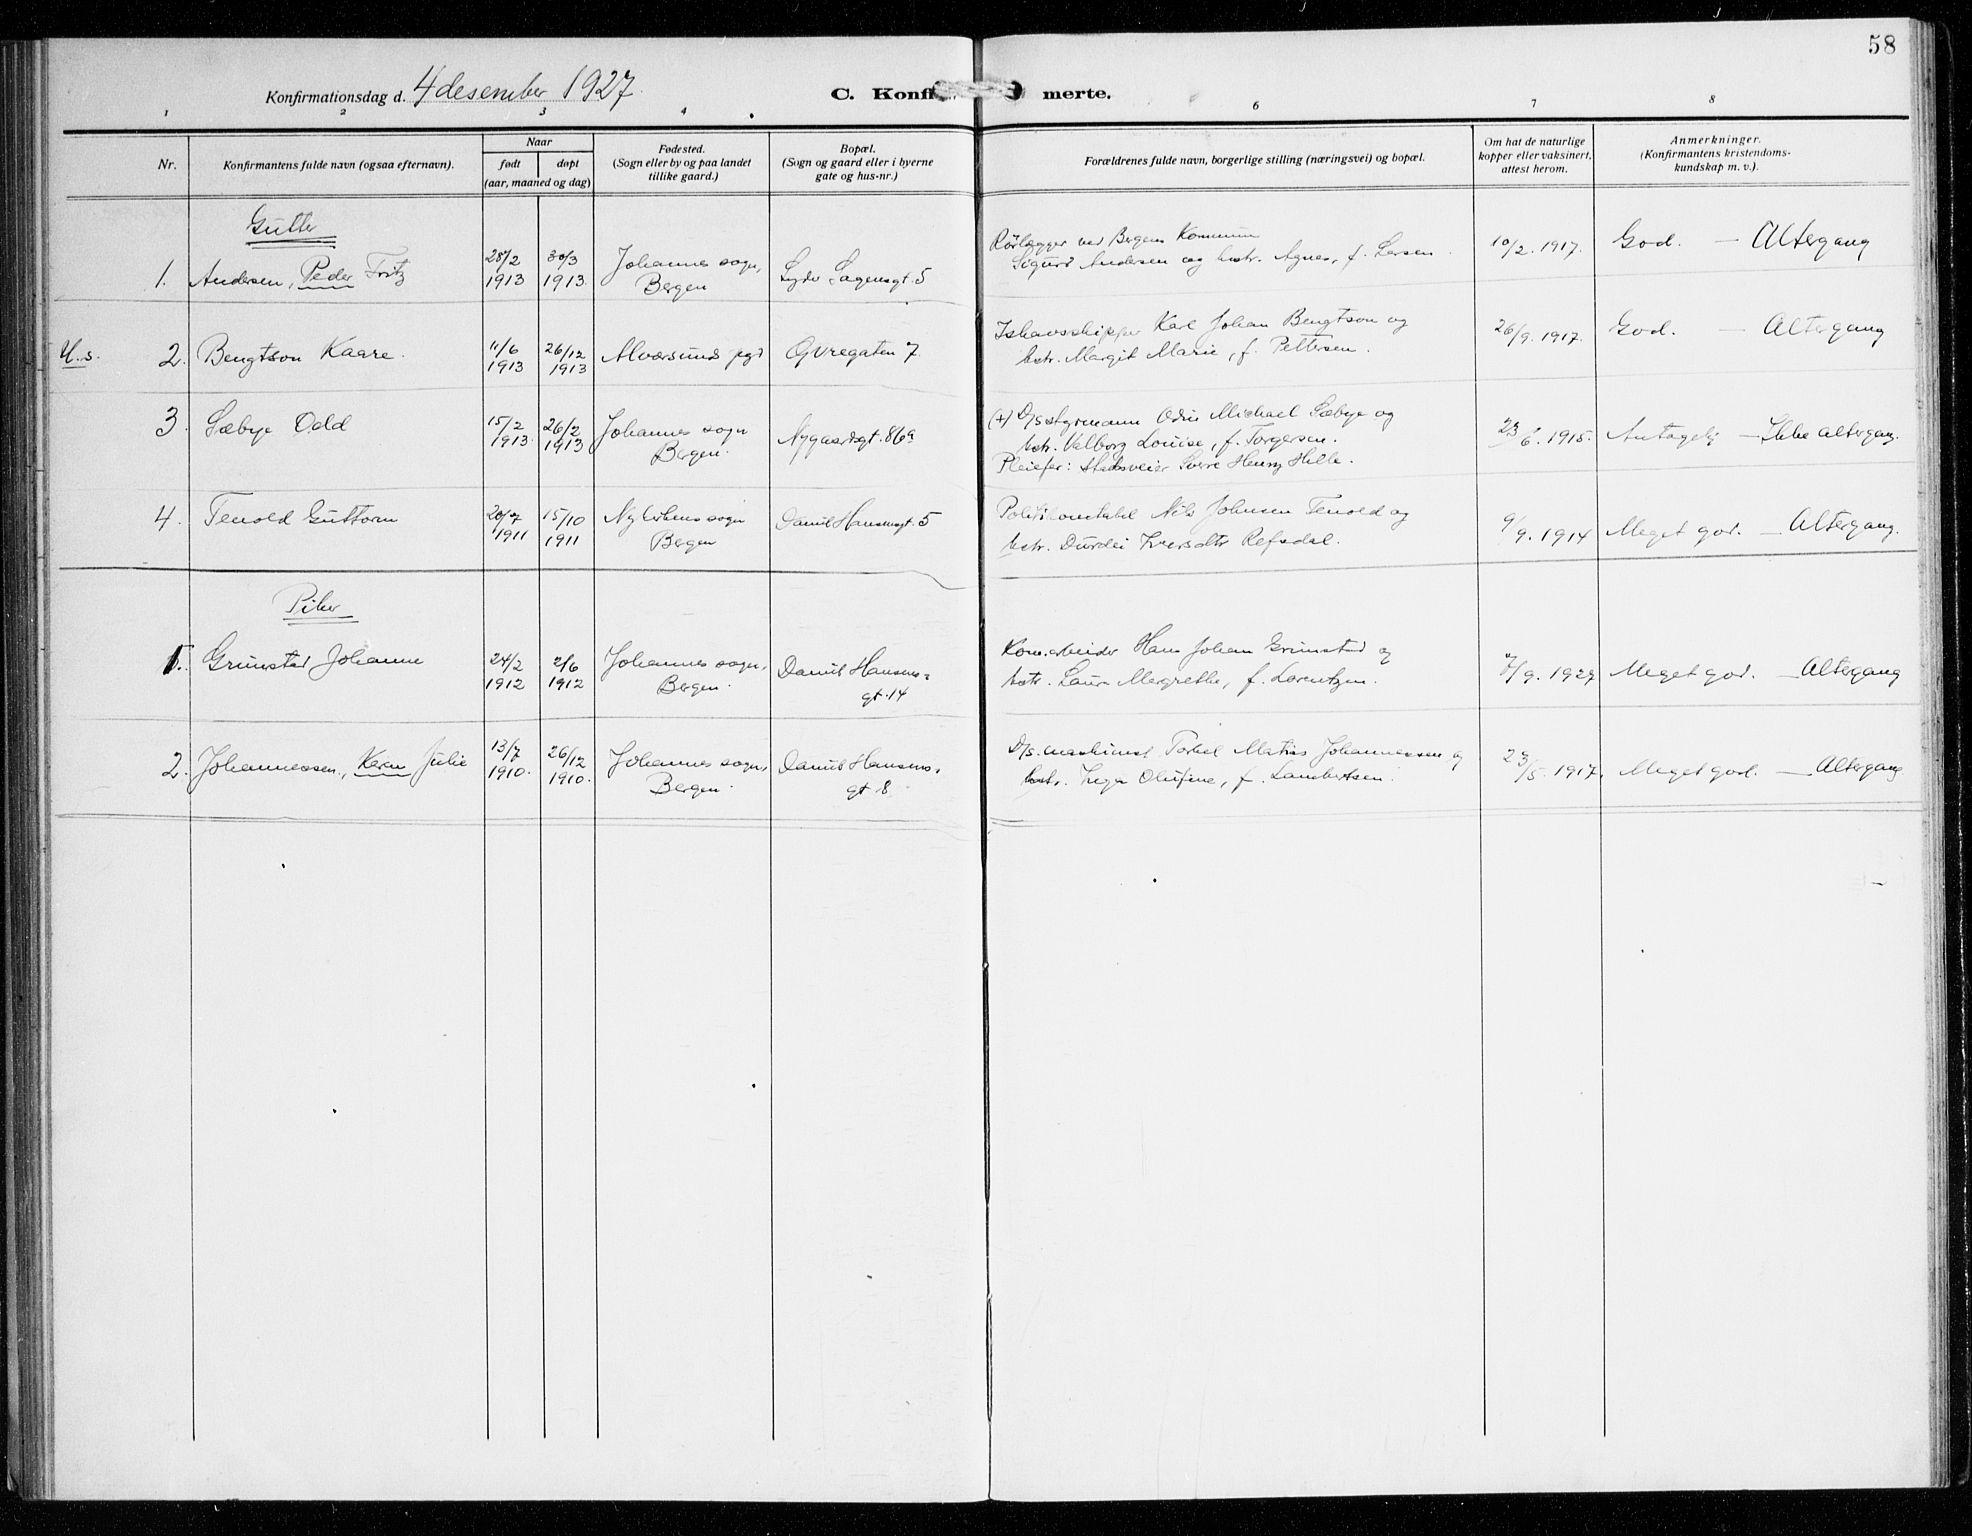 58
Konfirmationsdag d. 4 desember 1927.
C. Konfi merte.
1 2 3 4 6 7 8
Nr.
Konfirmantens fulde navn (ogsaa efternavn).
Naar
født døpt
(aar, maaned og dag)
Fødested.
(Sogn eller by og paa landet
tillike gaard.)
Bopæl.
(Sogn og gaard eller i byerne
gate og hus-nr.)
Forældrenes fulde navn, borgerlige stilling (næringsvei) og bopæl.
Om hat de naturlige
kopper eller vaksinert,
attest herom.
Anmerkninger.
(Konfirmantens kristendoms-
kundskap m. v.).
Gutter
1. Andersen, Peder Fritz
28/2
1913
30/3
1913.
Johannes sogn,
Bergen
Lyder Sagensgt. 5
Rörlægger ved Bergens Kommune
Sigurd Andersen og hstr. Agnes, f. Larsen.
10/2. 1917.
God. — Altergang
U.s. 2. Bengtson Kaare.
11/6
1913
26/12
1913
Alversund pgd
Øvregaten 7.
Ishavsskipper Karl Johan Bengtson og
hstr. Margit Marie, f. Pettersen.
26/9. 1917.
God. — Altergang
3. Sæbye Odd
15/2
1913.
26/2
1913
Johannes sogn
Bergen.
Nygaardsgt. 86a
(+) D/s styrmann Odin Michael Sæbye og
hstr. Valborg Louise, f. Torgersen.
Pleiefar: Sverre Henry Hille.
23/6. 1915.
Antagelig — Ikke altergang.
4. Tenold Guttorm
1911
15/10
1911
Nykirkens sogn
Bergen
Daniel Hansensgt. 5
Politikonstabel Nils Johnsen Tenold og
hstr. Durdei Iversdtr Refsdal.
9/9. 1914
Meget god. — Altergang.
Piker
1. Grimstad Johanne
24/2
1912
2/6
1912
Johannes sogn,
Bergen.
Daniel Hansens-
gt. 14
Kom.arbeider Hans Johan Grimstad og
hstr. Laura Margrethe, f. Lorentzen.
/9. 1927
Meget god. — Altergang
2. Johannessen, Karen Julie
13/7
1910.
26/12
1910.
Johannes sogn,
Bergen.
Daniel Hansens-
gt 8
D/s. maskinist Torkel Matias Johannessen og
hstr. Inga Olufine, f. Lambertsen.
23/5. 1917.
Meget god. — Altergang